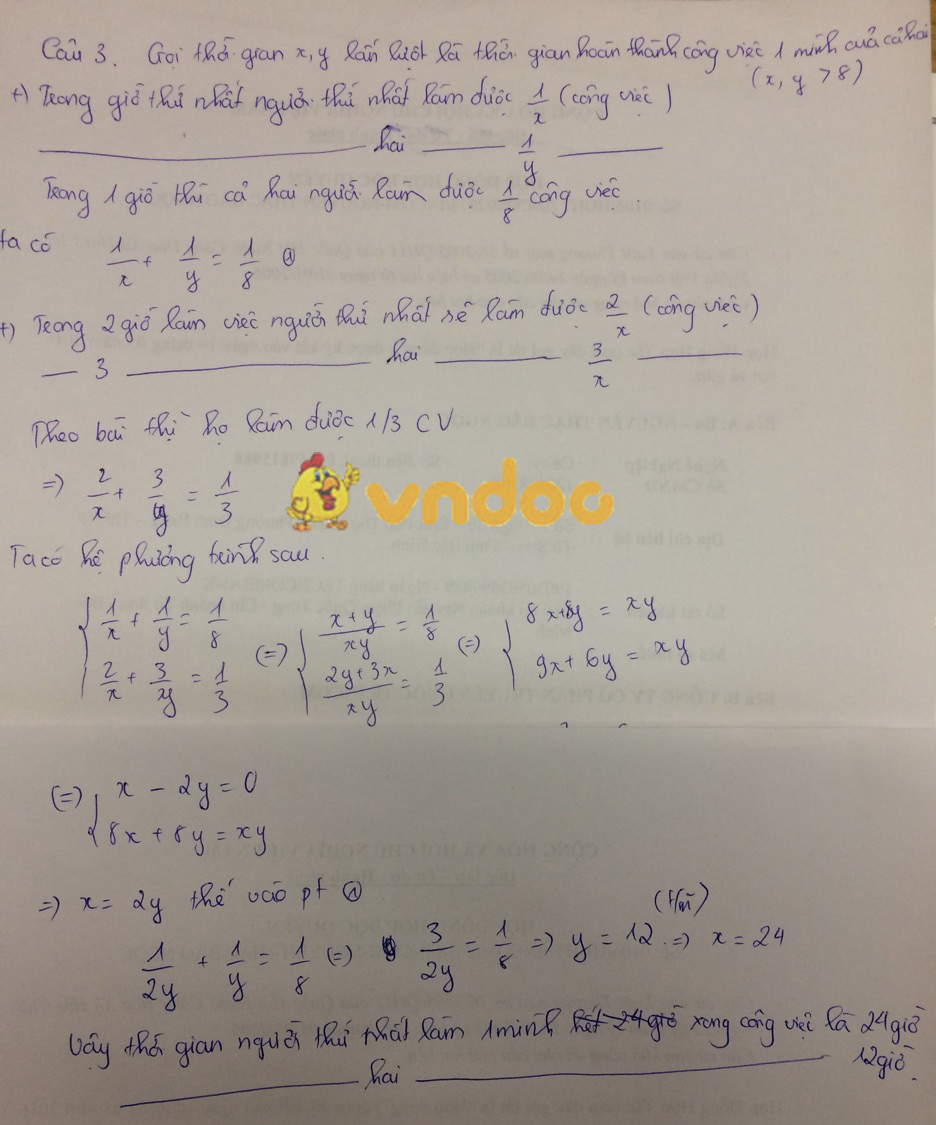 Câu 3. Gọi thời gian x, y lần lượt là thời gian hoàn thành công việc 1 mình của cả hai
(x, y > 8)
+) Trong giờ thứ nhất người thứ nhất làm được 1/x (công việc)
hai 1/y
Trong 1 giờ thì cả hai người làm được 1/8 công việc
ta có 1/x + 1/y = 1/8 ①
+) Trong 2 giờ làm việc người thứ nhất sẽ làm được 2/x (công việc)
3 hai 3/x
Theo bài thì họ làm được 1/3 CV
=> 2/x + 3/y = 1/3
vndoc
Ta có hệ phương trình sau.
{ 1/x + 1/y = 1/8 (=) { x+y/xy = 1/8 (=) { 8x+8y = xy
2/x + 3/y = 1/3 2y+3x/xy = 1/3 9x+6y = xy
(=) { x - 2y = 0
8x + 8y = xy
=> x = 2y thế vào pt ①
(t/m)
1/2y + 1/y = 1/8 (=) 3/2y = 1/8 => y = 12 => x = 24
Vậy thời gian người thứ nhất làm 1 mình hết 24 giờ xong công việc là 24 giờ
hai 12 giờ.